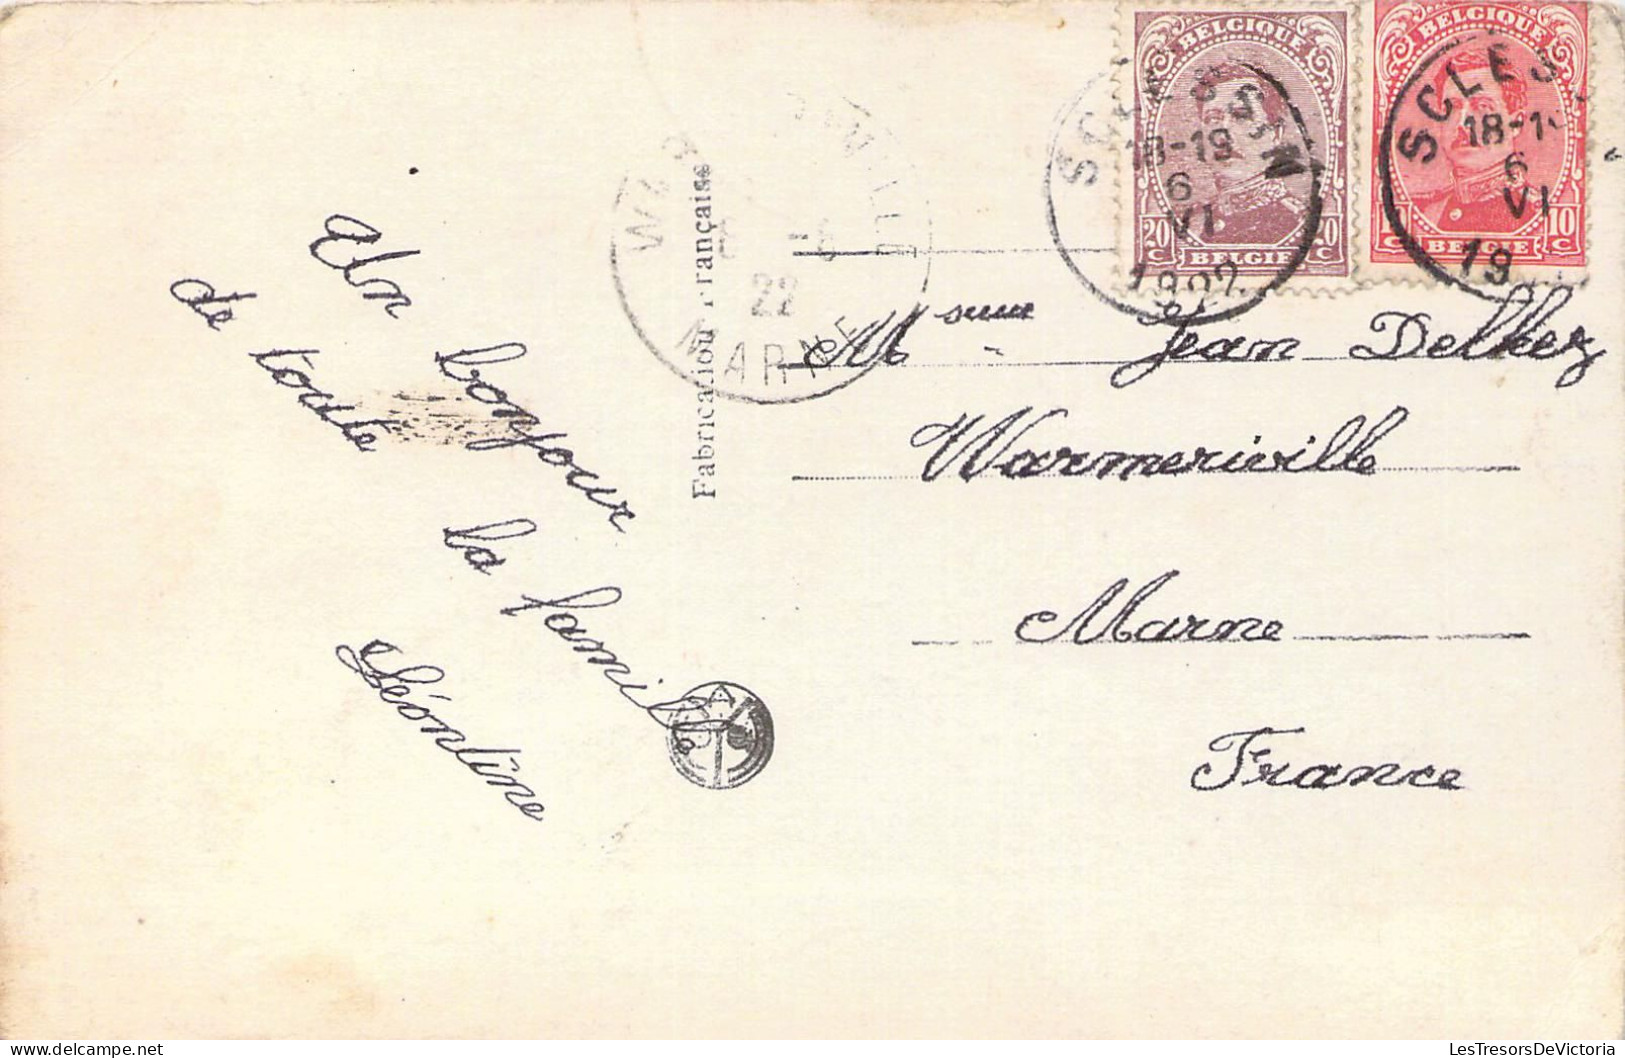 Un bonjour
de toute la famille
Léontine
Fabrication Française
BELGIQUE
20 C
BELGIE
BELGIQUE
10 C
BELGIE
SCLESSIN
18-19
6
VI
1922
SCLES
18-1
6
VI
19
22
MARNE
Msieur Jean Delhez
Warmeriville
Marne
France
LesTresorsDeVictoria